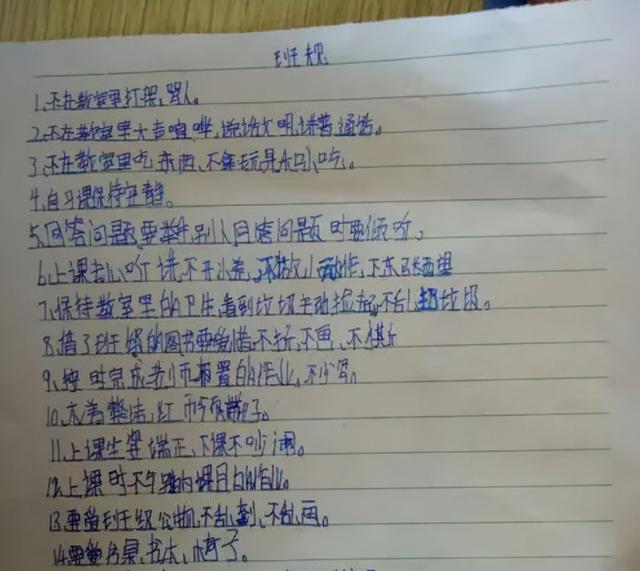 班规
1、不在教室里打架,骂人。
2、不在教室里大声喧哗,说话文明,讲普通话。
3、不在教室里吃东西,不拿玩具
4、自习课保持安静。
5、回答问题要举手,别人回答问题时要倾听。
6、上课专心听讲,不开小差,不做小动作,不东张西望
7、保持教室里的卫生,看到垃圾主动捡起,不乱扔垃圾。
8、借了班级的图书要爱惜,不折,不画,不撕
9、按时完成老师布置的作业,不少写。
10、衣着整洁,红
11、上课坐姿端正,下课不吵闹。
12、上课时不写别的课目的作业。
13、要爱班级公物,不乱刻、不乱画。
14、要爱书桌、书本、椅子。